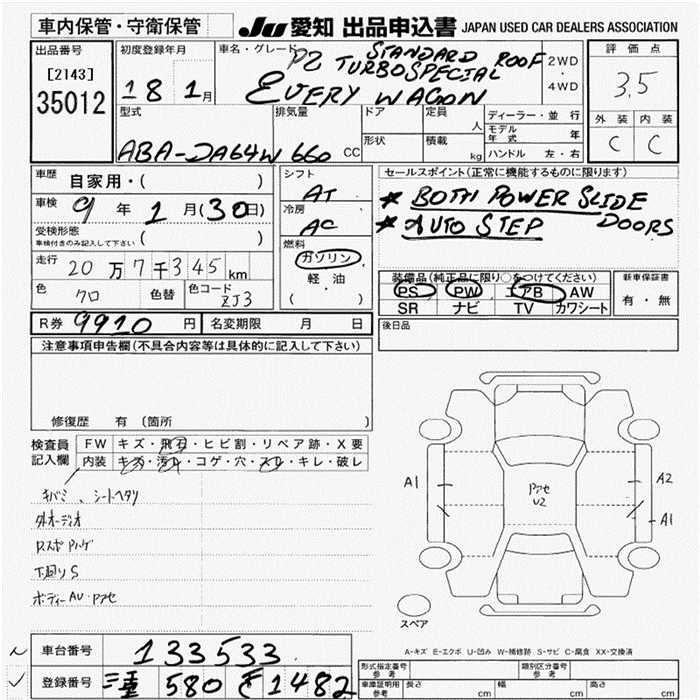 車内保管・守衛保管
JU 愛知 出品申込書 JAPAN USED CAR DEALERS ASSOCIATION
出品番号
[2143]
35012
初度登録年月
18 1月
車名・グレード
PZ STANDARD ROOF
TURBO SPECIAL
EVERY WAGON
2WD
・
4WD
評価点
3.5
外装 内装
C C
型式
ABA-DA64W
排気量
660 CC
ドア
形状
定員
人
積載
kg
ディーラー・並行
モデル年式 年
ハンドル 左・右
車歴 自家用・( )
車検 9年1月(30日)
受検形態
車検付きのみ記入して下さい ( )
走行 20万7千345km
色 クロ 色替 色コード ZJ3
シフト
AT
冷房
AC
燃料
ガソリン
軽・油
( )
セールスポイント(正常に機能するものに限ります)
* BOTH POWER SLIDE
DOORS
* AUTO STEP
装備品(純正品に限り○をつけてください)
PS PW エアB AW
SR ナビ TV カワシート
新車保証書
有・無
後日品
R券 9920円 名変期限 月 日
注意事項申告欄(不具合内容等は具体的に記入して下さい)
修復歴 有 (箇所 )
検査員記入欄
FW キズ・飛石・ヒビ割・リペア跡・X要
内装 キズ・汚れ・コゲ・穴・スレ・キレ・破レ
キバミ、シートヘタリ
外オーディオ
下廻りS
A1 A2
A1
U2
スペア
A-キズ E-エクボ U-凹み W-補修跡 S-サビ C-腐食 XX-交換済
車台番号 133533
登録番号 三重 580 そ 1482
形式指定番号
参考
類別区分番号
参考
車庫証明用
参考
長さ cm 幅 cm 高さ cm